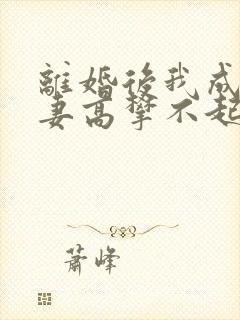 離婚後我成
妻高攀不起
蕭峰